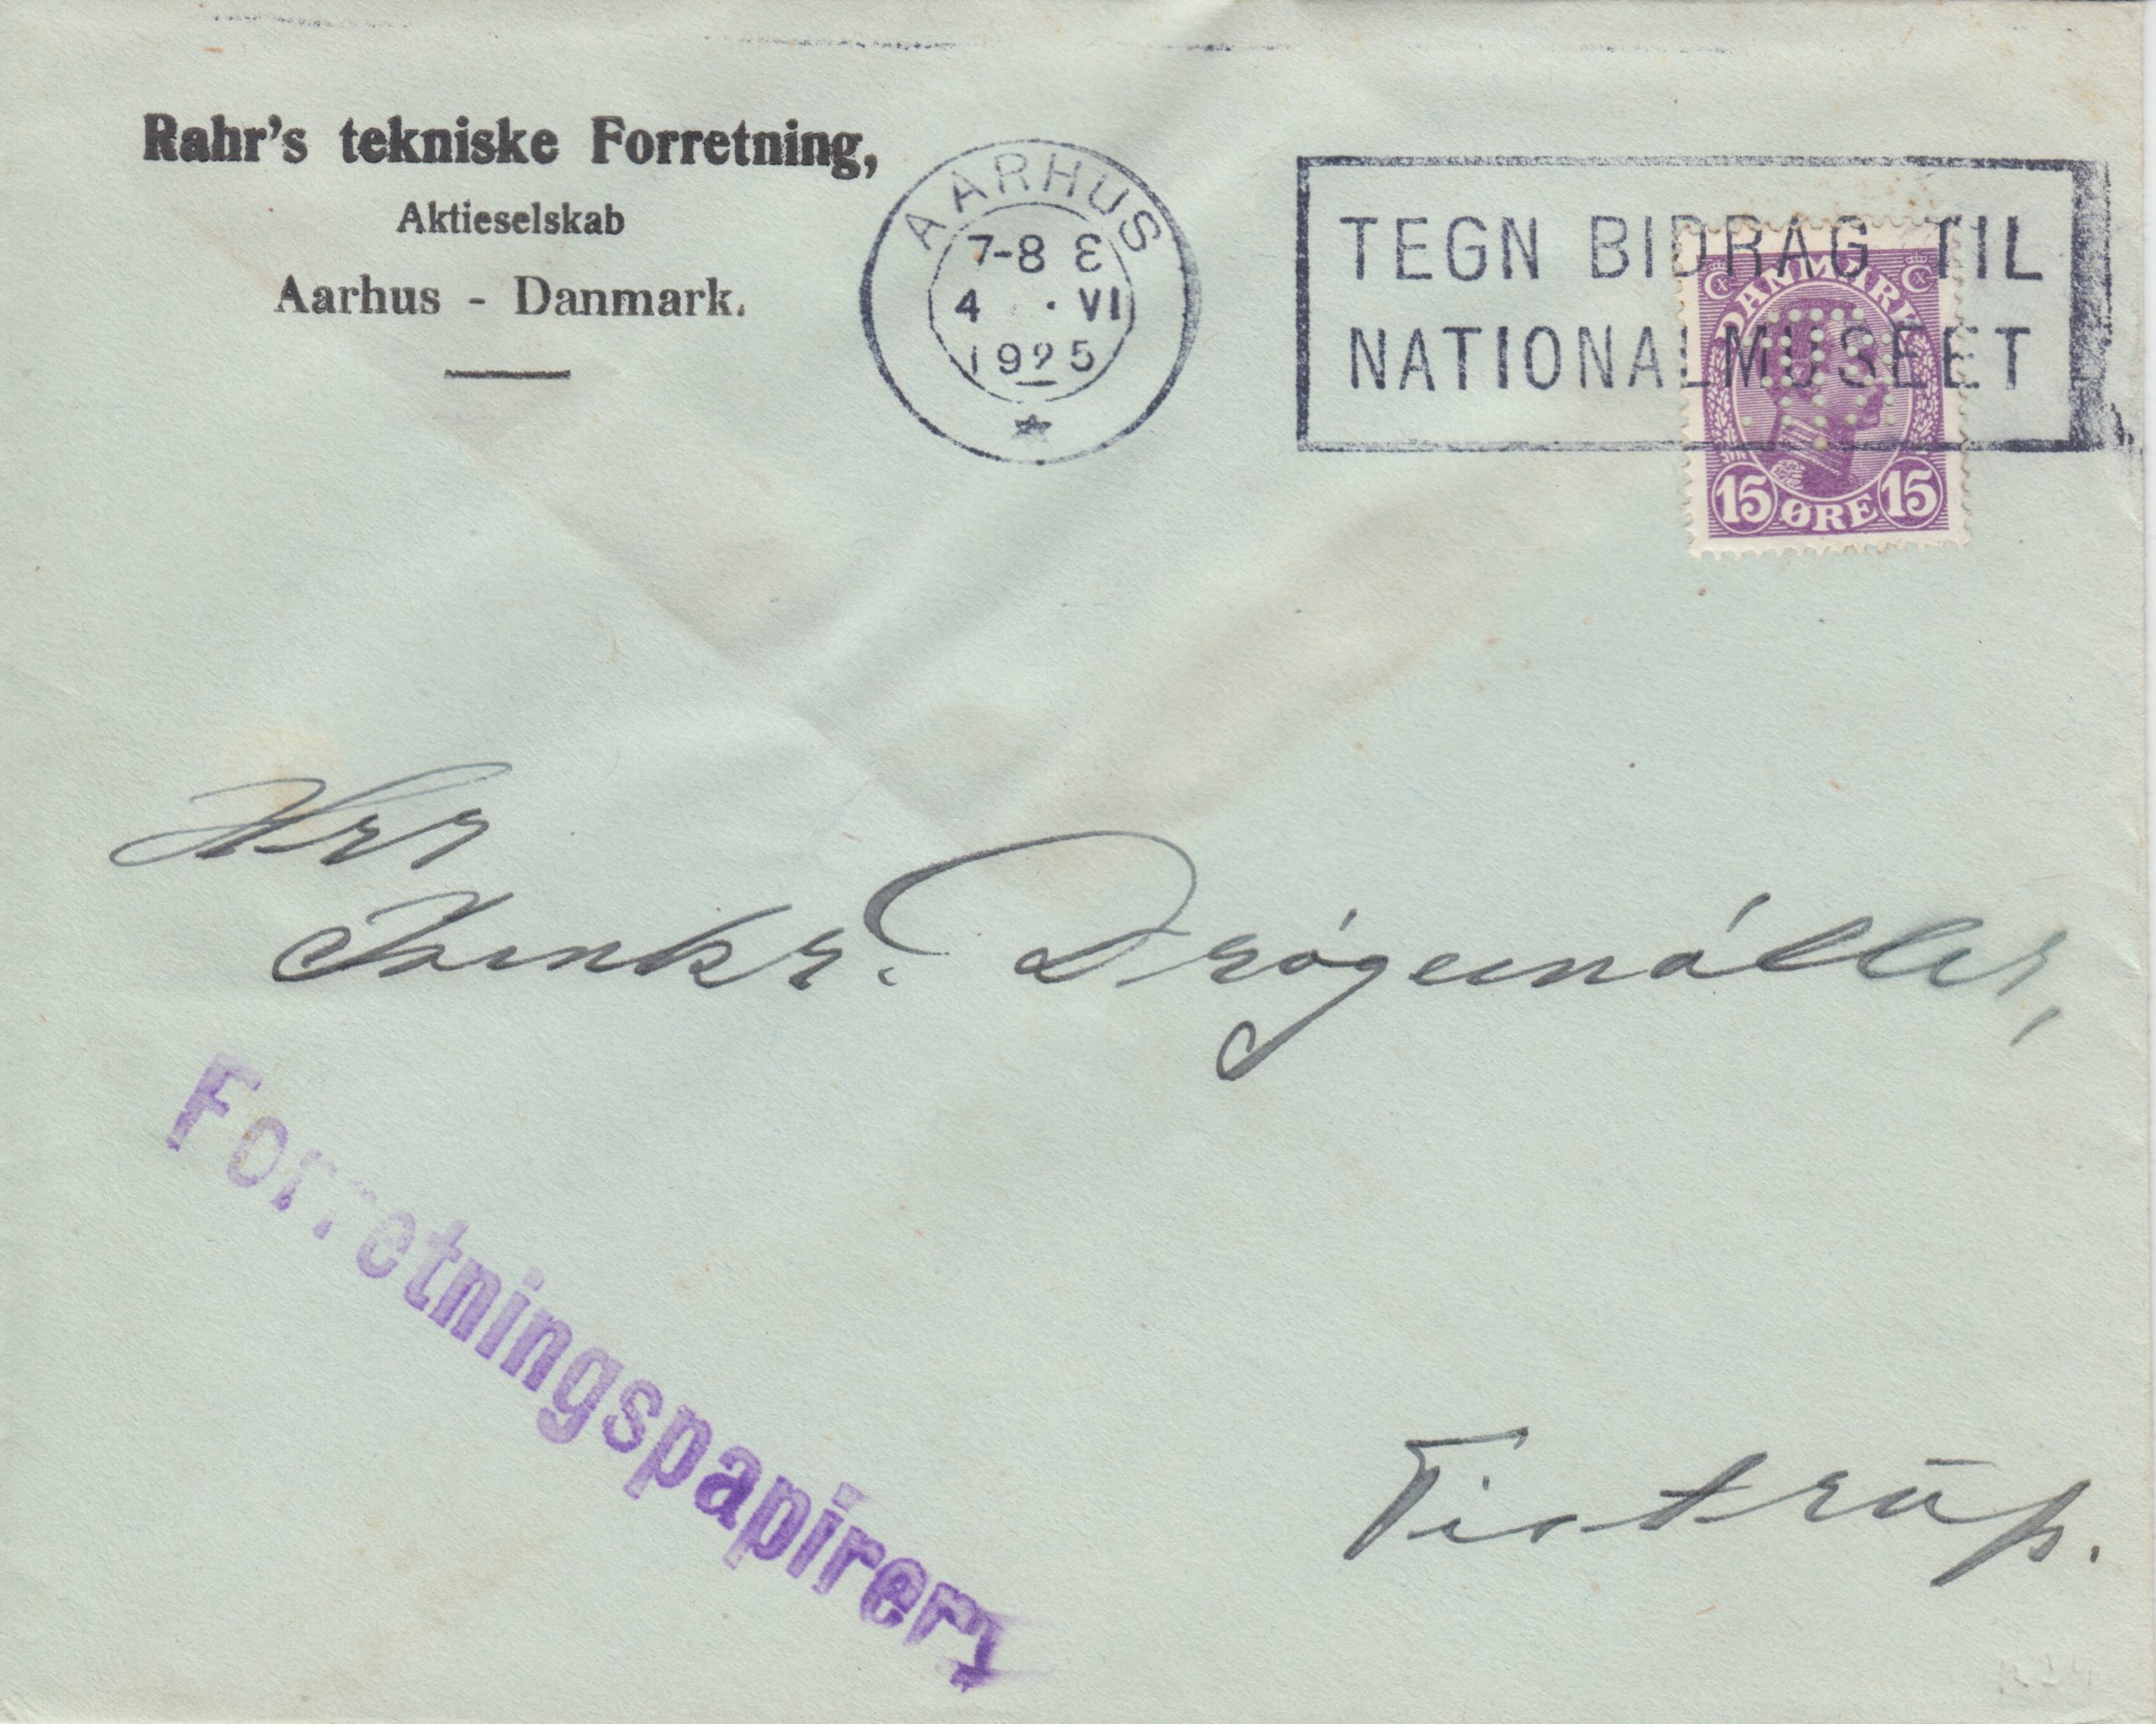 Rahr's tekniske Forretning,
Aktieselskab
Aarhus - Danmark.
AARHUS
7-8 E
4 · VI
1925
TEGN BIDRAG TIL
NATIONALMUSEET
DANMARK
15 ØRE 15
Hrr
Drögemüller,
Forretningspapirer
Tistrup.